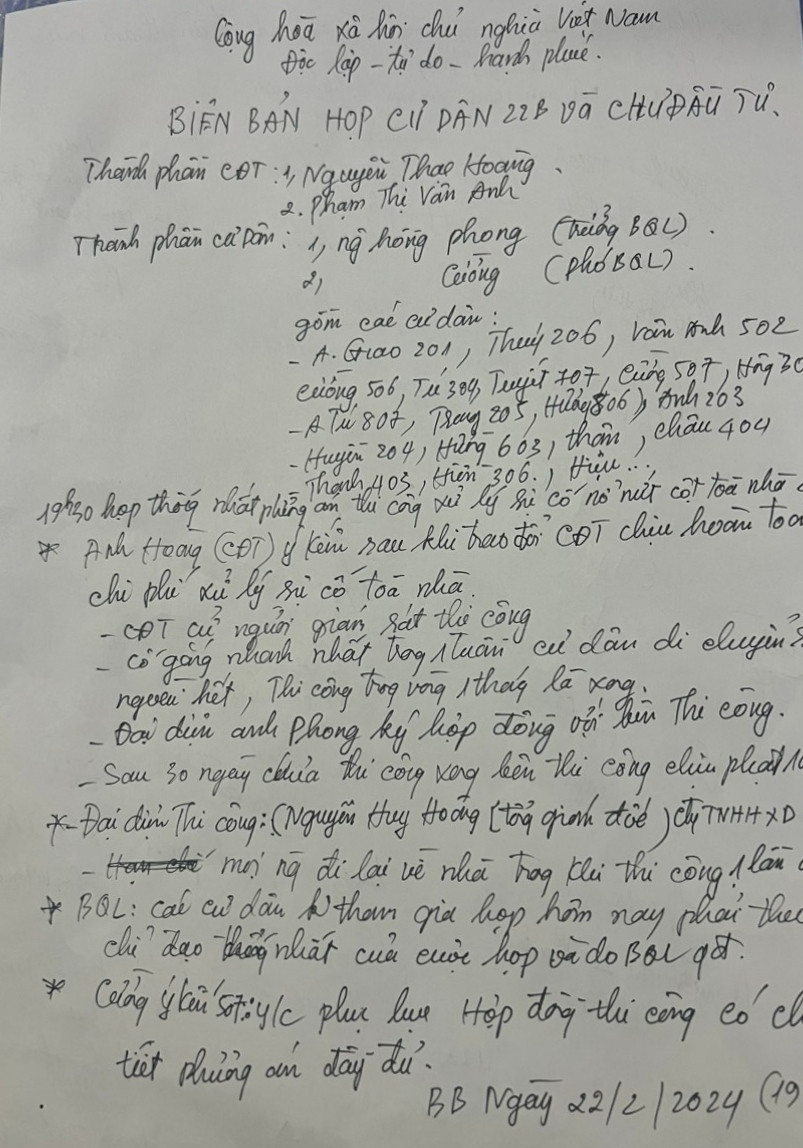 Cộng hoà xã hôi chủ nghĩa Việt Nam
Độc lập - tự do - hạnh phúc.
BIÊN BẢN HỌP CƯ DÂN 22B và CHỦ ĐẦU TƯ.
Thành phần CĐT: 1, Nguyễn Thao Hoàng.
2. Phạm Thị Vân Anh
Thành phần cư Dân: 1, ng hồng phong (trưởng BQL).
2, Cường (phó BQL).
gồm các cư dân:
- A. Giao 201, Thuý 206, Vân Anh 502
Cường 506, Tú 304, Tuyết 707, Cường 507, Hồng 30
- A Tú 807, Trang 205, Hưng 806, Anh 203
- Huyền 204, Hưng 603, thơm, châu 404
Thanh 403, Hiền 306., Hiệu...
19h30 họp thống nhất phương án thi công xử lý sự cố nổ nứt cột toà nhà
* Anh Hoàng (CĐT) ý kiến sau khi trao đổi CĐT chịu hoàn toà
chi phí xử lý sự cố toà nhà.
- CĐT cử người giám sát thi công
- Cố gắng nhanh nhất trong 1 tuần cư dân di chuyển
người hết, Thi công trong vòng 1 tháng là xong.
- Đại diện anh Phong ký hợp đồng với bên Thi công.
- Sau 30 ngày chưa thi công xong bên thi công chịu phạt 10
*- Đại diện Thi công: (Nguyễn Huy Hoàng [tổng giám đốc) cty TNHH XD
- Hạn chế mọi ng đi lại về nhà trong khi thi công 1 lần
* BQL: các cư dân k tham gia họp hôm nay phải the
chỉ đạo thống nhất của cuộc họp và do BQL qđ.
* Cường ý kiến 507: y/c phụ lục Hợp đồng thi công có ch
tiết phương án đầy đủ.
BB Ngày 22/2/2024 (19